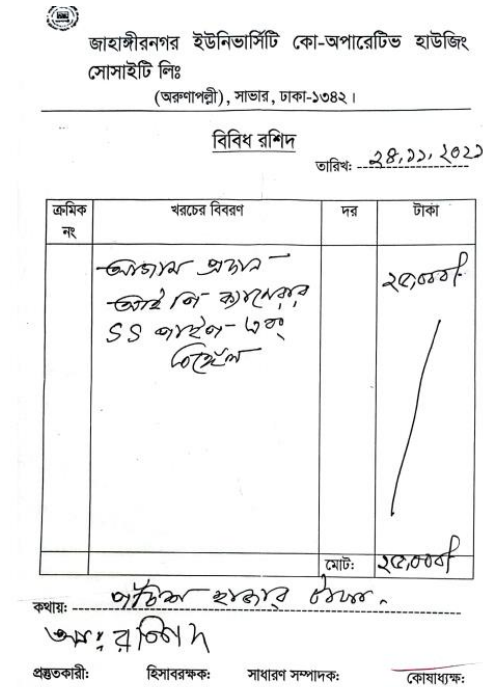 জাহাঙ্গীরনগর ইউনিভার্সিটি কো-অপারেটিভ হাউজিং
সোসাইটি লিঃ
(অরুণাপল্লী), সাভার, ঢাকা-১৩৪২।
বিবিধ রশিদ
তারিখ: ২৪.১১.২০২১
ক্রমিক নং খরচের বিবরণ দর টাকা
প্রদান ২৫,০০০/
আই পি ক্যামেরার
SS পাইপ- এবং
মোট: ২৫,০০০/
কথায়: পঁচিশ হাজার টাকা
আঃ রশিদ
প্রস্তুতকারী: হিসাবরক্ষক: সাধারণ সম্পাদক: কোষাধ্যক্ষ: